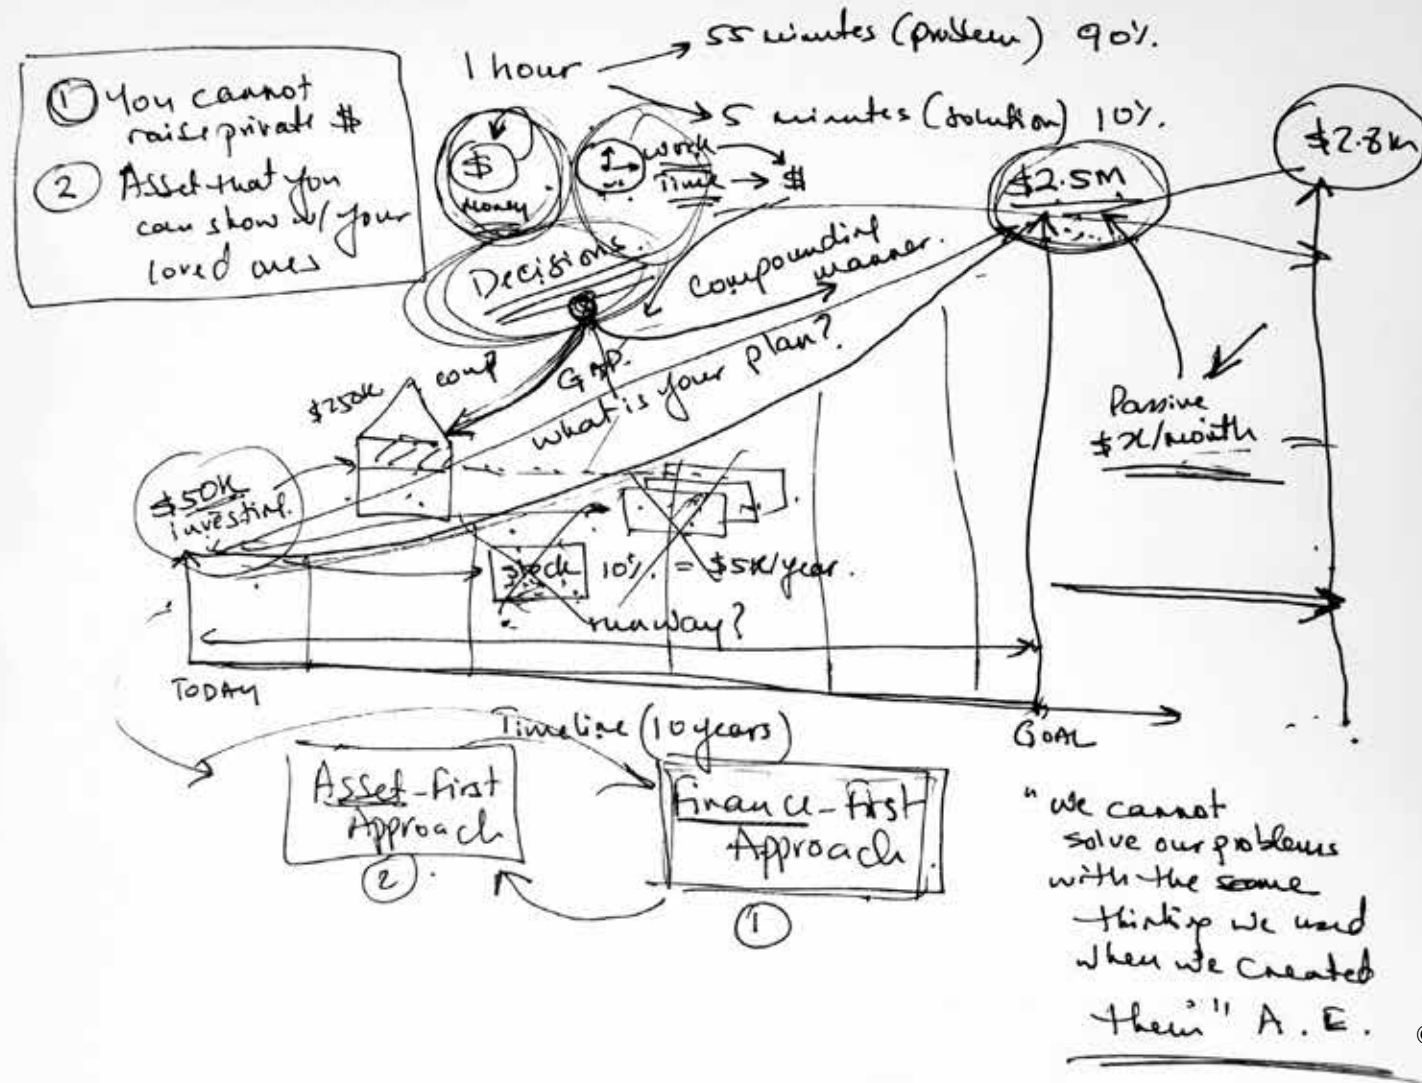 1 You cannot
raise private $
2 Asset that you
can show w/ your
loved ones
1 hour
55 minutes (problem) 90%.
5 minutes (solution) 10%.
$
money
work
Time → $
$2.5M
$2.8M
Decisions.
compounding
manner.
GAP.
what is your plan?
$250K
comp
$50K
investing.
Stock 10% = $5K/year.
runway?
Passive
$x/month
TODAY
GOAL
Timeline (10 years)
Asset-First
Approach
2
Finance-First
Approach
1
"We cannot
solve our problems
with the same
thinking we used
when we created
them" A.E.
©